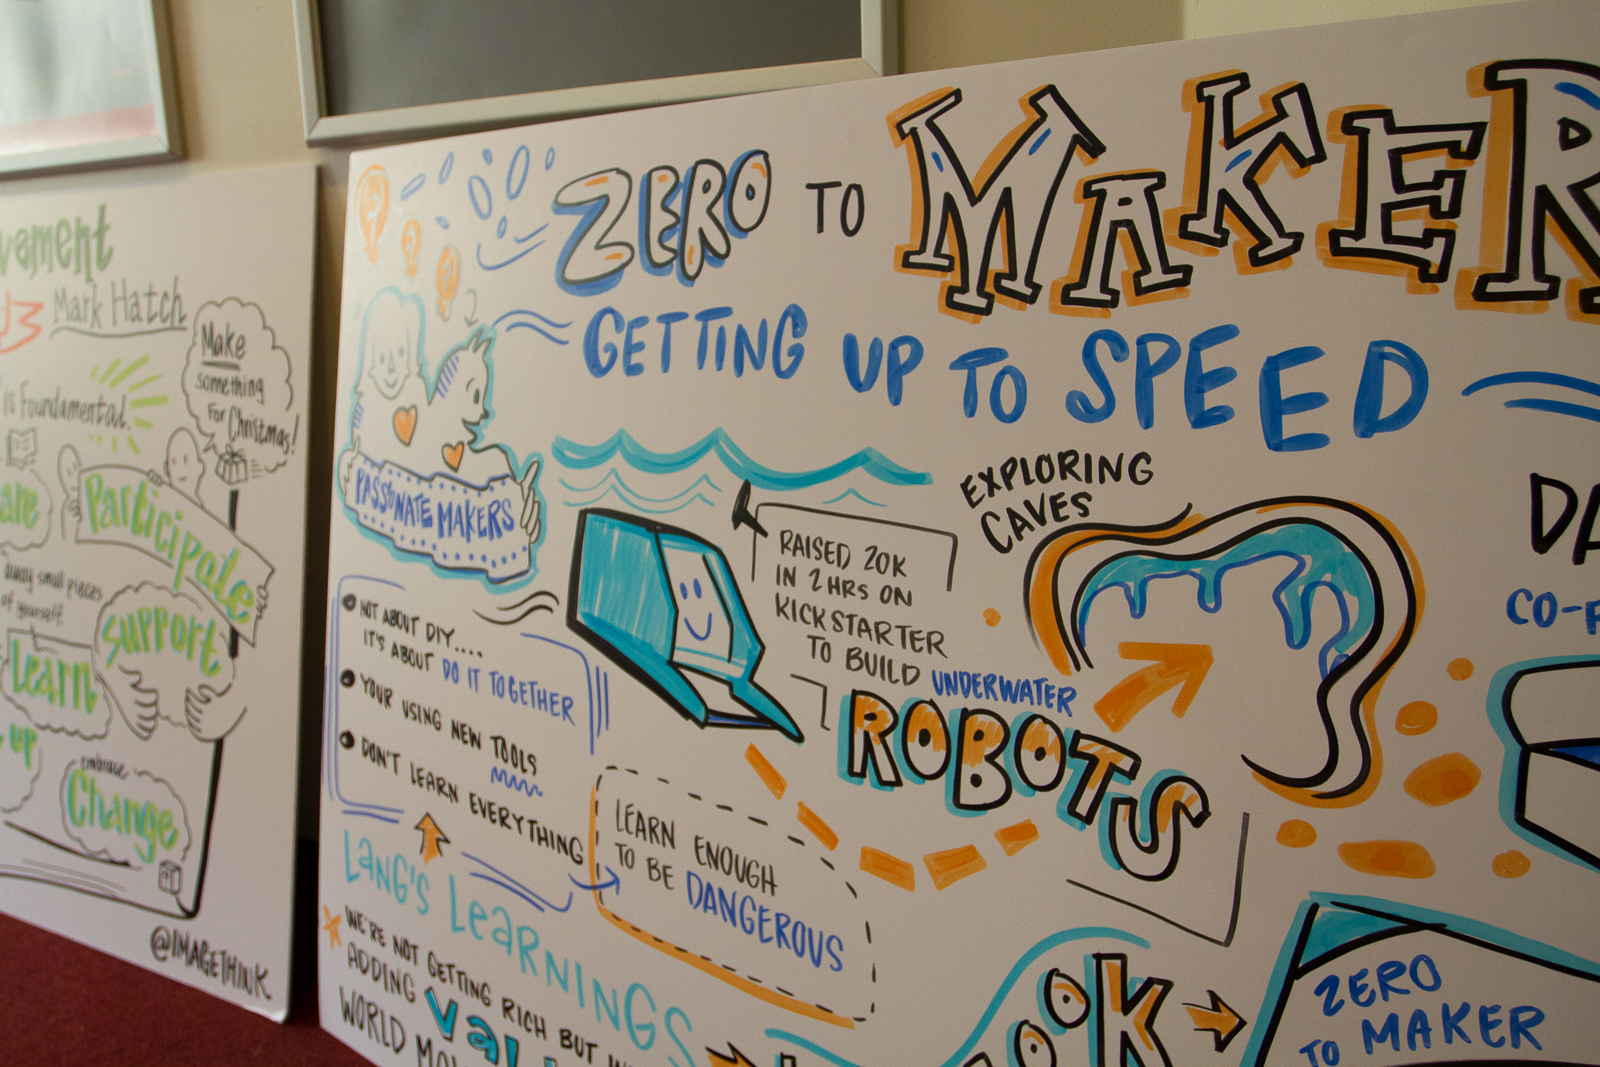 vement
Mark Hatch
Make
something
For Christmas!
is Foundamental.
Participate
are
away small pieces
of yourself.
Support
Learn
up
embrace
Change
@IMAGETHINK
ZERO TO MAKER
GETTING UP TO SPEED
PASSIONATE MAKERS
NOT ABOUT DIY....
IT'S ABOUT DO IT TOGETHER
YOUR USING NEW TOOLS
DON'T LEARN EVERYTHING
LEARN ENOUGH
TO BE DANGEROUS
LANG'S LEARNINGS
WE'RE NOT GETTING RICH BUT
ADDING
WORLD
RAISED 20K
IN 2 HRS ON
KICKSTARTER
TO BUILD UNDERWATER
ROBOTS
EXPLORING
CAVES
CO-F
OOK
ZERO
TO MAKER